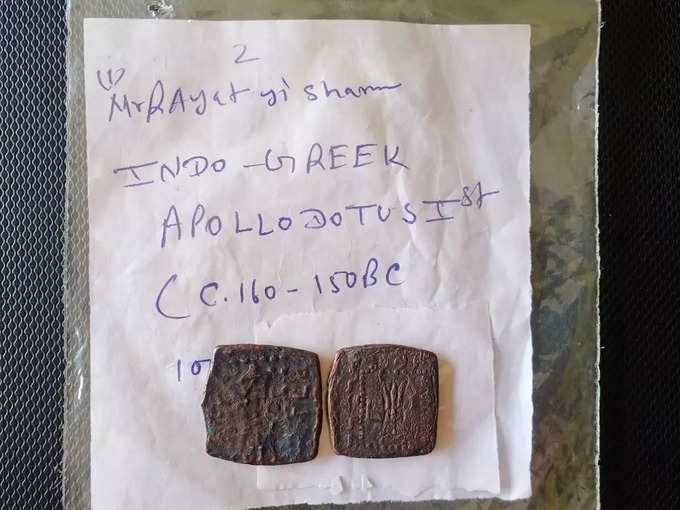 2
(1)
Mr RAyat yi sharm
INDO-GREEK
APOLLODOTUS Ist
(C.160-150BC
10